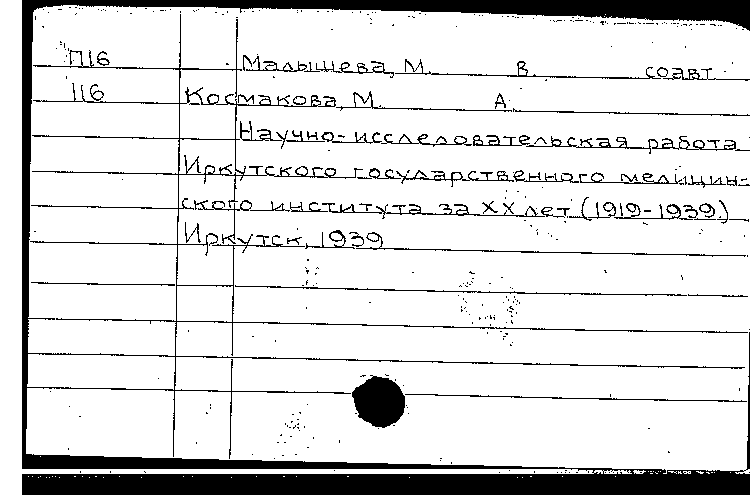 П16 Малышева, М. В. соавт.
116 Космакова, М. А.
Научно-исследовательская работа
Иркутского государственного медицин-
ского института за XX лет (1919-1939)
Иркутск, 1939